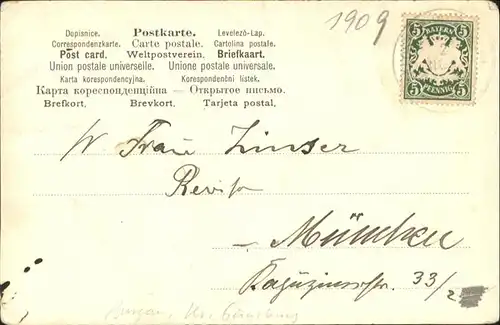 1909
Dopisnice. Postkarte. Levelező-Lap.
Correspondenzkarte. Carte postale. Cartolina postale.
Post card. Weltpostverein. Briefkaart.
Union postale universelle. Unione postale universale.
Karta korespondencyjna. Korespondenční lístek.
Карта кореспонденційна — Открытое письмо.
Brefkort. Brevkort. Tarjeta postal.
BAYERN
5 5
5 5
PFENNIG
Frau Zinser
München
33/2